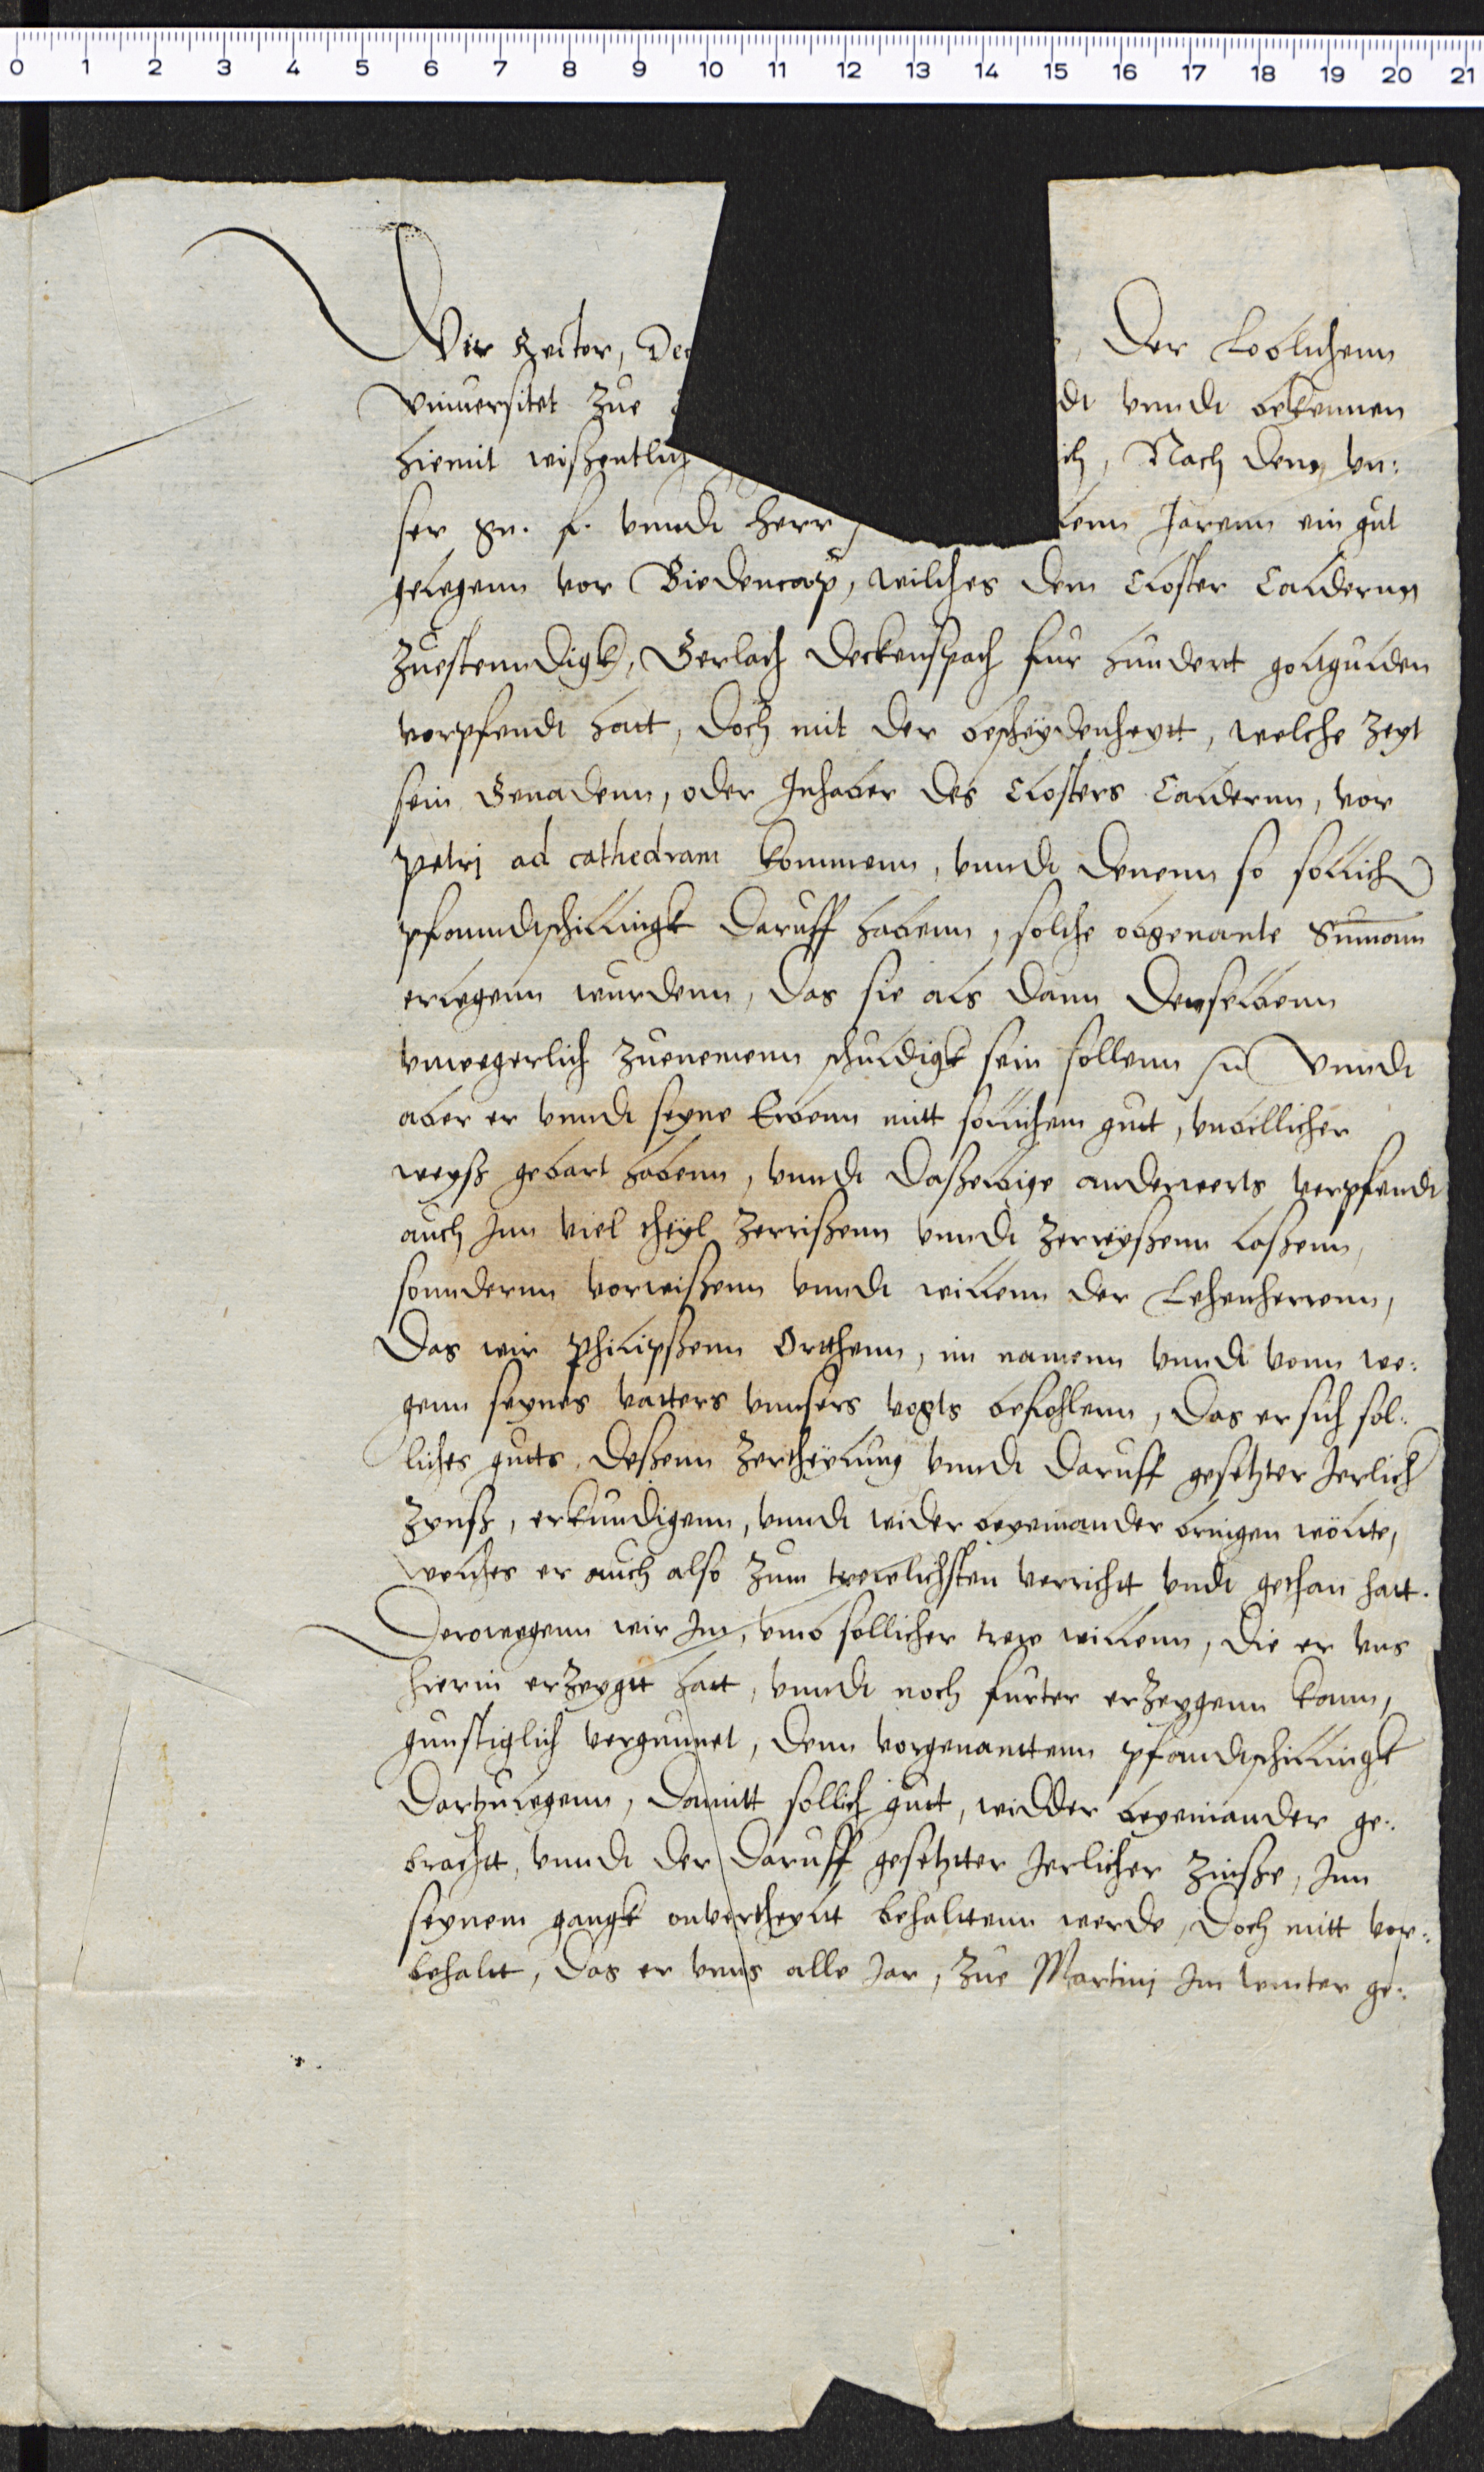 0 1 2 3 4 5 6 7 8 9 10 11 12 13 14 15 16 17 18 19 20 21
Wir Rector, Dec , Der Loblichenn
Vniuersitet zue dt vnndt bekennen
hiemit wißentlich ich, Nach dem vn:
ser gn. f. vnndt herr lenn Jarenn ein gut
gelegenn vor Biedencap, wilches dem Closter Caldernn
zuestenndigk, Gerlach Deckenspach fur hundert goltgulden
verpfendt hatt, doch mit der bescheydenheytt, welche zeyt
sein Genadenn, oder Inhaber des Closters Caldernn, vor
petri ad cathedram kommenn, vnndt denenn so sollich
pfanndtschillingk daruff habenn, solche obgenante Summam
erlegenn wurdenn, das sie als dann denselbenn
vnwegerlich zuenemenn schuldigk sein sollenn Vnndt
aber er vnndt seyne Erbenn mitt sollichem gutt, vnbillicher
weyß gebart habenn, vnndt daßelbige anderwerts verpfendt
auch Inn viel theyl zerrißenn vnndt zerreyßenn laßenn,
sonndernn vorwißenn vnndt willenn der Lehenherrenn,
Das wir Philipßenn Ortthenn, im namenn vnndt vonn we:
genn seynes vatters vnnsers vogts befohlenn, das er sich sol:
liches gutts, deßenn zertheylung vnndt daruff gesetzter Jerlich
zynß, erkundigenn, vnndt wider beyeinander bringen wöllte,
welches er auch also zum trewlichsten verricht vndt gethan hatt.
Derowegenn wir Im, vmb sollicher trew willenn, die er vns
hierin erzeygtt hatt, vnndt noch furter erzeygenn kann,
gunstiglich vergunnet, denn vorgenanttenn pfandtschillingk
dartzulegenn, damitt sollich gutt, widder beyeinander ge:
bracht, vnndt der daruff gesetztter Jerlicher zinße, Inn
seynem gangk onvertheylt behalttenn werde, doch mitt vor:
behaltt, das er vnns alle Jar, zue Martinj Im winter ge: